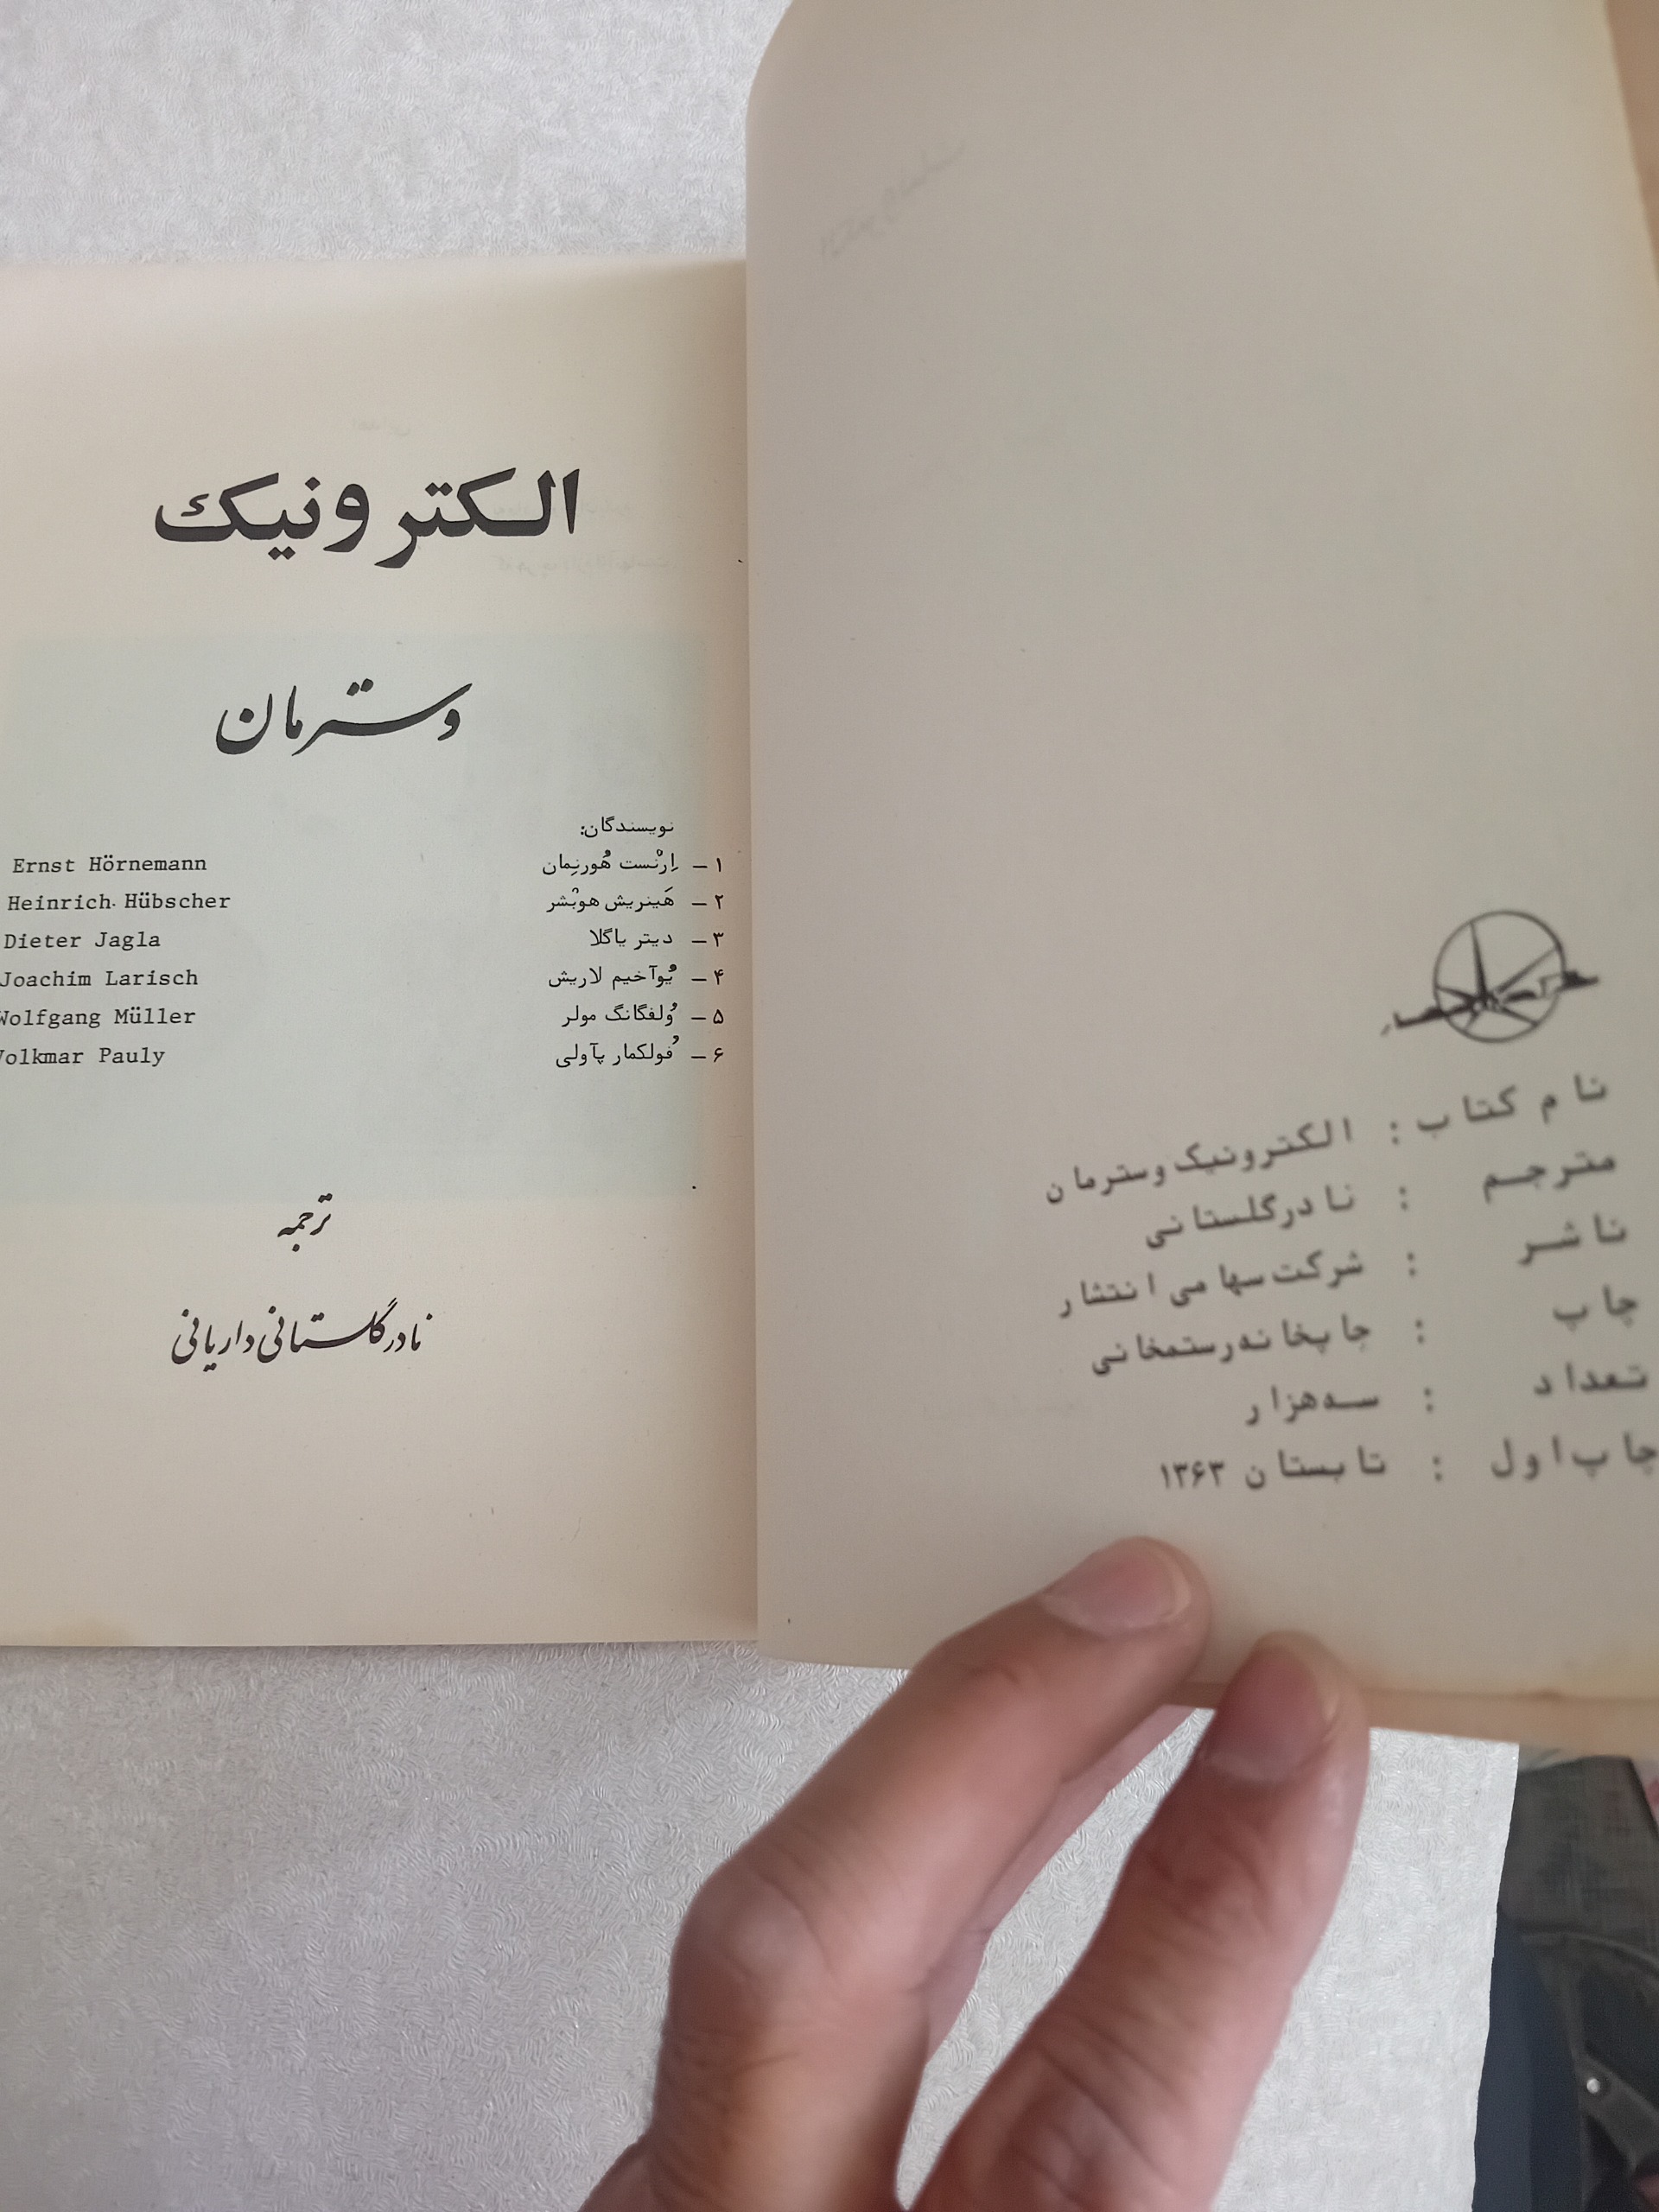 نام کتاب : الکترونیک وسترمان
مترجم : نادرگلستانی
ناشر : شرکت سهامی انتشار
چاپ : چاپخانه رستمخانی
تعداد : سه هزار
چاپ اول : تابستان ۱۳۶۳
الکترونیک
وسترمان
نویسندگان:
۱ – اِرنْست هُورنِمان Ernst Hörnemann
۲ – هَینریش هوبْشر Heinrich Hübscher
۳ – دیتر یاگلا Dieter Jagla
۴ – یُوآخیم لاریش Joachim Larisch
۵ – وُلفگانگ مولر Wolfgang Müller
۶ – فُولکمار پآولی Volkmar Pauly
ترجمه
نادر گلستانی داریانی